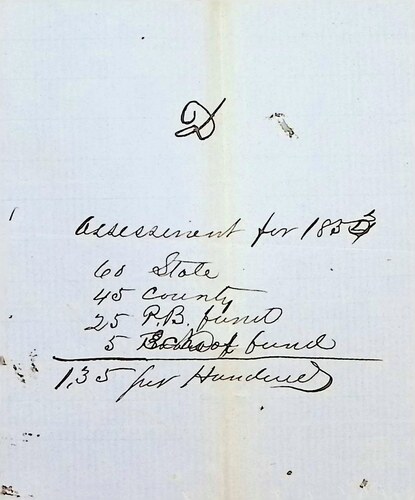 D
Assessment for 185
60 State
45 County
25 P.B. fund
5 School fund
1,35 per Hundred